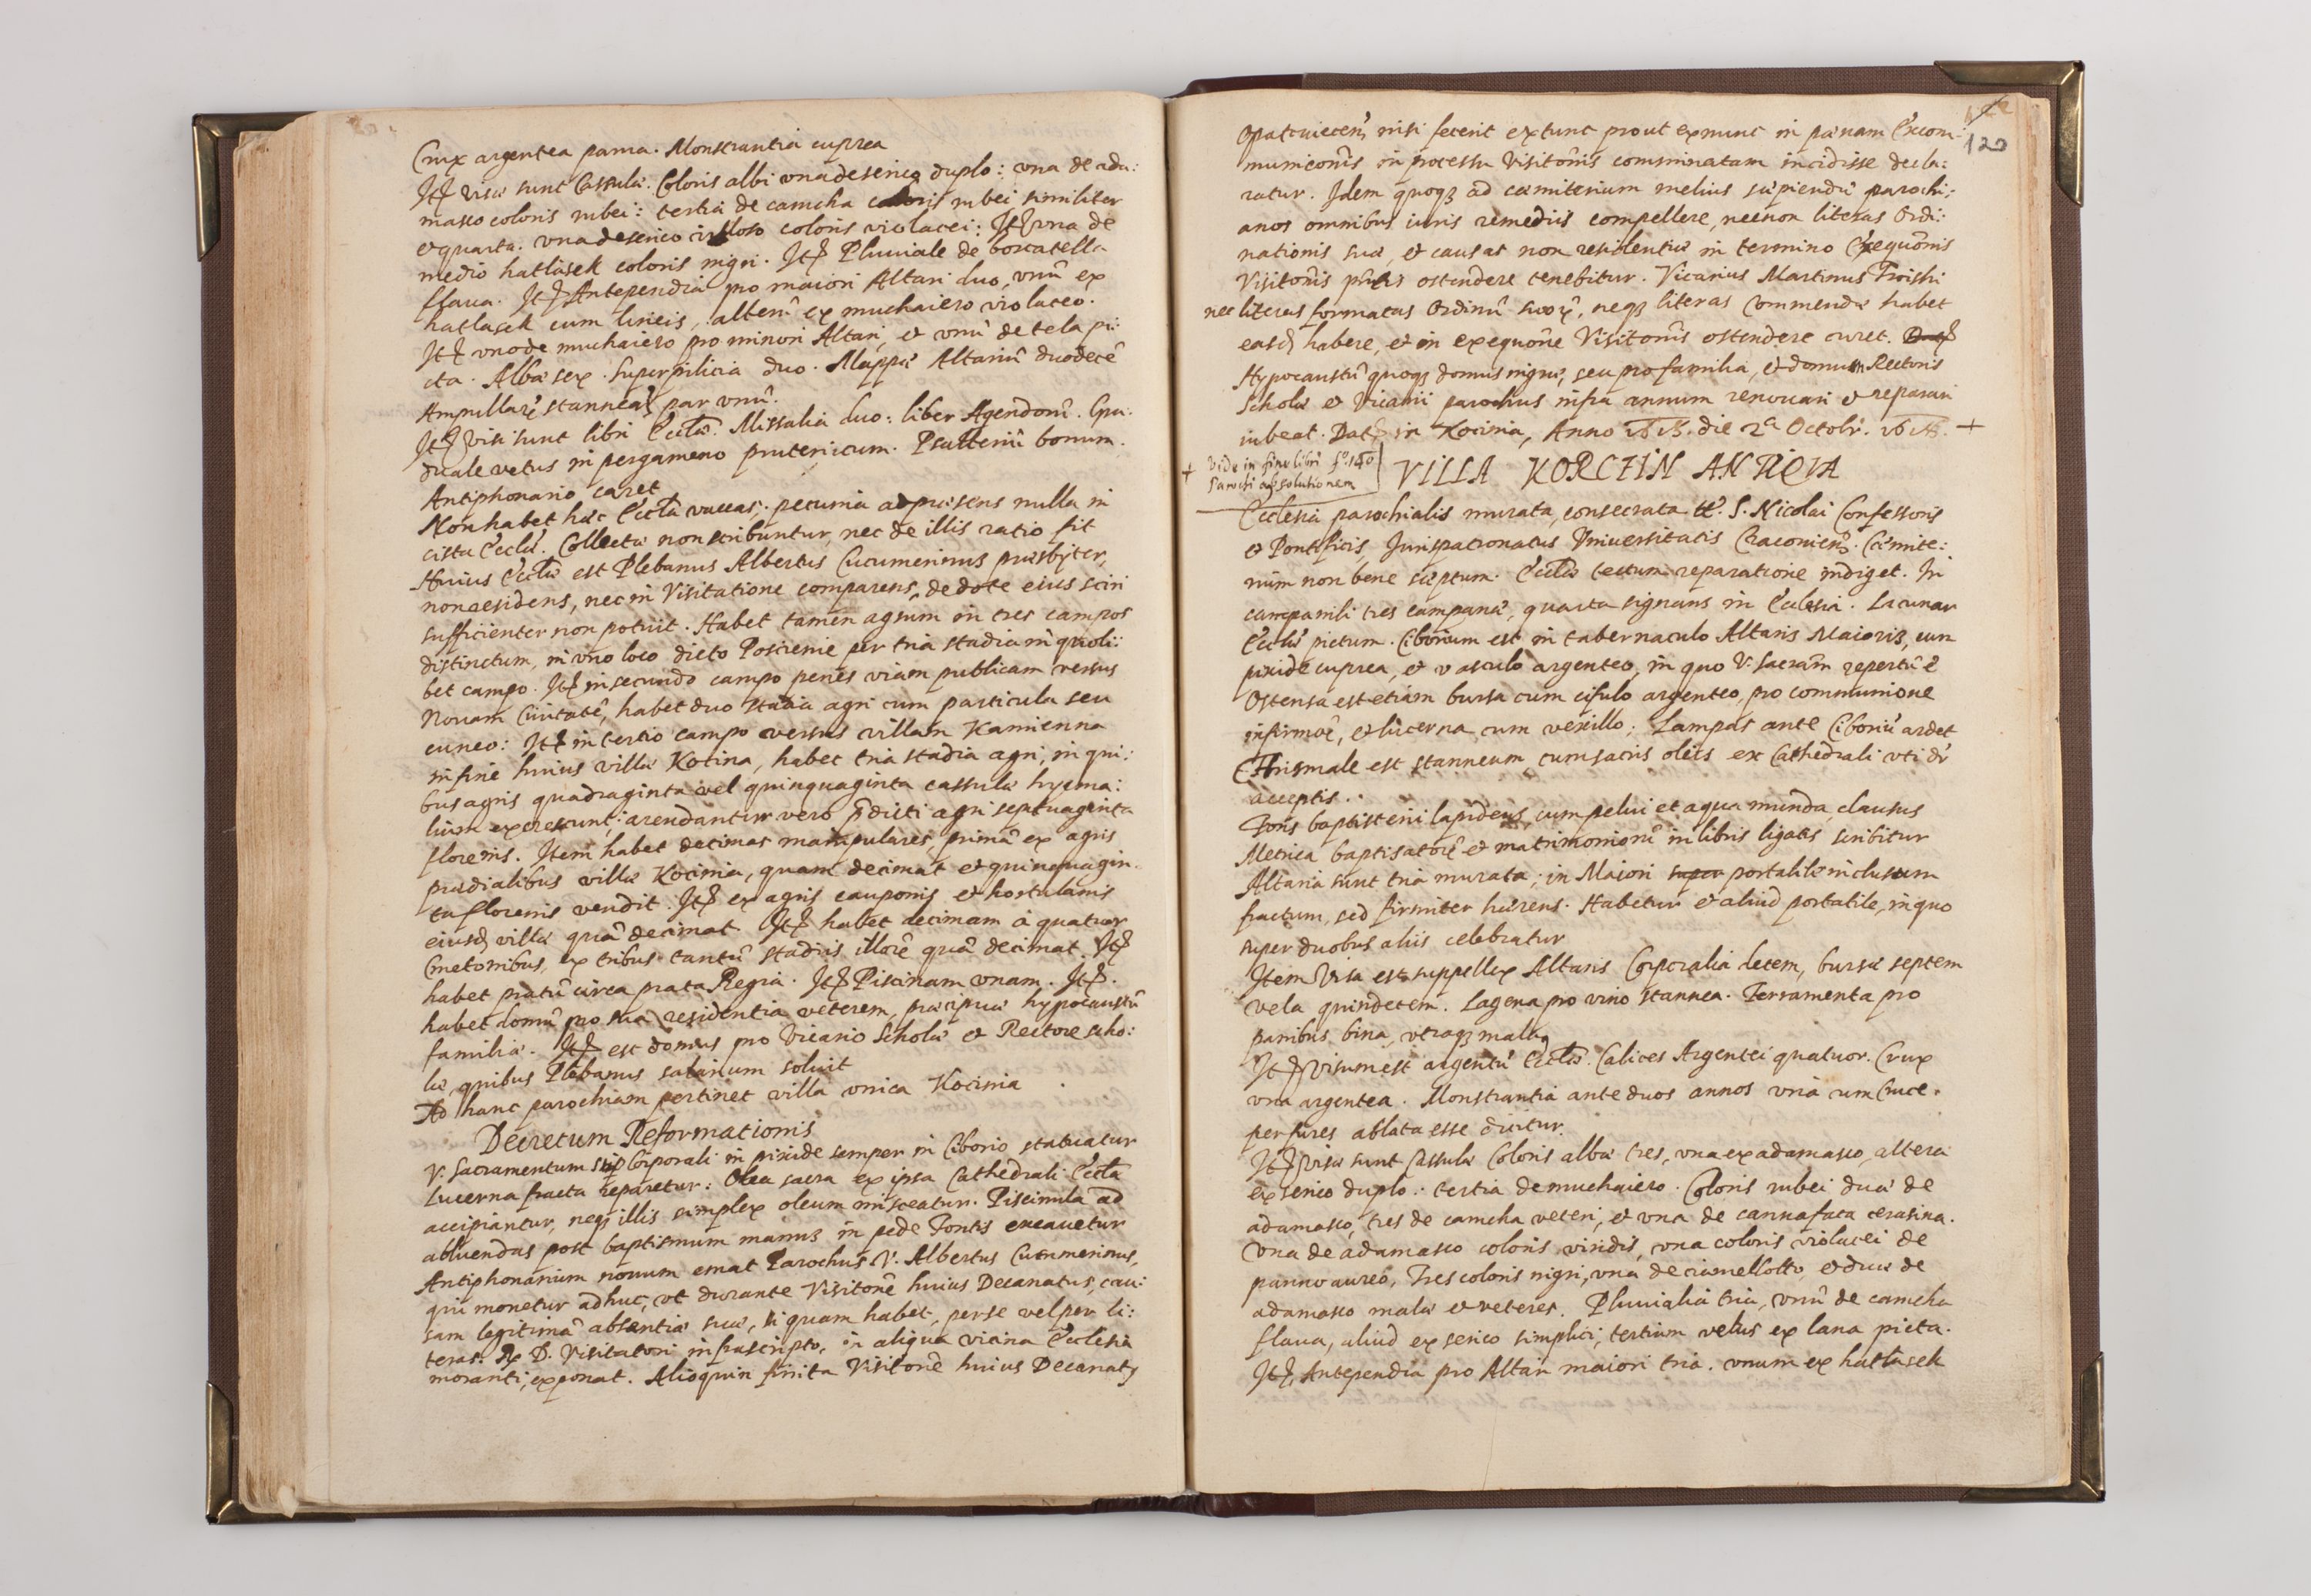 Crux argentea parua. Monstrantia cuprea
Itē visæ sunt Cassulæ. Coloris albi vna de serico duplo: vna de ada:
masco coloris rubei: tertia de camcha coloris rubei similiter
et quarta. vna de serico coloris violacei: Itē vna de
medio hatlasek coloris nigri. Itē Pluuiale de borcatella
flaua. Itē Antependia pro maiori Altari duo, vnū ex
hatlasek cum lineis, alterū ex muchaiero violaceo.
Itē vno de muchaiero pro minori Altari, et vnū de tela pi:
cta. Albæ sex. Superpilicia duo. Mappæ Altariū duodecē
Ampullarū stannear par vnū.
Itē visi sunt libri Eccłæ. Missalia duo: liber Agendorū. Gra:
duale vetus in pergameno prutenicum. Psalteriū bonum.
Antiphonario caret
Non habet hæc Eccła vaccas; pecunia ad præsens nulla in
cista Eccłæ. Collectæ non scribuntur, nec de illis ratio fit
Huius Eccłæ est Plebanus Albertus Cucumerinus præsbyter,
non residens, nec in Visitatione comparens, de dote eius sciri
sufficienter non potuit. Habet tamen agrum in tres campos
distinctum, in vno loco dicto Poscienie per tria stadia in quoli:
bet campo. Itē in secundo campo penes viam publicam versus
Nouam Ciuitatē, habet duo stadia agri cum particula seu
cuneo: Itē in tertio campo versus villam Kamienna
in fine huius villæ Kocina, habet tria stadia agri, in qui:
bus agris quadraginta vel quinquaginta cassulæ hyema:
lium excrescunt; arendantur vero p̄dicti agri septuaginta
florenis. Item habet decimas manipulares, primā ex agris
prædialibus villæ Kocinia, quam decimat et quinquagin
ta florenis vendit. Itē ex agris cauponis et hortulanis
eiusd villæ quā decimat. Itē habet decimam à quatuor
Cmetonibus, ex tribus tantū stadiis illorū quā decimat. Itē
habet pratū circa prata Regia. Itē Piscinam vnam. Itē.
habet domū pro sua residentia veterem, præcipuæ hypocaustū
familiæ. Itē est domus pro Vicario Scholæ et Rectore scho:
læ, quibus Plebanus salarium soluit
Ad hanc parochiam pertinet villa vnica Kocinia
Decretum Reformationis
V. Sacramentum sup Corporali in pixide semper in Ciborio statuatur
Lucerna fracta reparetur: Olea sacra ex ipsa Cathedrali Eccła
accipiantur, neq illis simplex oleum misceatur. Piscinula ad
abluendas post baptismum manus in pede Fontis excauetur
Antiphonarium nouum emat Parochus V. Albertus Cucumerinus,
qui monetur adhuc, vt durante Visitōne huius Decanatus, cau:
sam legitimā absentiæ suæ, si quam habet, per se vel per li:
teras. R. D. Visitatori infrascripto, in aliqua vicina Ecclesia
moranti, exponat. Alioquin finita Visitōne huius Decanatꝰ
122
120
Opatouiecen̄ nisi fecerit ex tunc prout ex nunc in pœnam Excom:
municōnis in processu Visitōnis comminatam incidisse decla:
ratur. Idem quoqꝫ ad cœmiterium melius sæpiendū parochi:
anos omnibus iuris remediis compellere, necnon literas Ordi:
nationis suæ, et causas non residentiæ in termino Exequōnis
Visitōnis pn̄tis ostendere tenebitur. Vicarius Martinus Troiski
nec literas formatas Ordinū suorū, neqꝫ literas Commendæ habet
easd habere, et in exequōne Visitōnis ostendere curet. Datē
Hypocaustū quoqꝫ domus nigræ, seu pro familia, et domum Rectoris
Scholæ et Vicarii parochus infra annum renouari et reparari
iubeat. Datē in Kocinia, Anno die 2ª Octobr. +
+ Vide in fine libri fº 140
Parochi absolutionem
VILLA KORCZIN ANTIQVA
Ecclesia parochialis murata, consecrata tt. S. Nicolai Confessoris
et Pontificis, Jurispatronatus Vniuersitatis Cracouien̄. Cœmite:
rium non bene sæptum. Eccłæ tectum reparatione indiget. In
campanili tres campanæ, quarta signans in Ecclesia. Lacunar
Eccłæ pictum. Ciborium est in tabernaculo Altaris Maioris, cum
pixide cuprea, et vasculo argenteo, in quo V. Sacram̄ repertū ē
Ostensa est etiam bursa cum cifulo argenteo, pro communione
infirmorū, et lucerna cum vexillo; Lampas ante Ciboriū ardet
Chrismale est stanneum, cum sacris oleis ex Cathedrali vti dr̄
acceptis.
Fons baptisterii lapideus, cum pelui et aqua munda, clausus
Metrica baptisatorū et matrimoniorū in libris ligatis scribitur
Altaria sunt tria murata; in Maiori super portatile inclusum
fractum, sed firmiter hærens. Habetur et aliud portatile, in quo
super duobus aliis celebratur
Item Visa est suppellex Altaris Corporalia decem, bursæ septem
vela quindecem. Lagena pro vino stannea. Ferramenta pro
panibus bina, vtraqꝫ mala
Itē visum est argentū Eccłæ. Calices Argentei quatuor. Crux
vna argentea. Monstrantia ante duos annos vna cum Cruce.
per fures ablata esse dicitur.
Itē visæ sunt Cassulæ Coloris albæ tres, vna ex adamasco, altera
ex serico duplo: tertia de muchaiero. Coloris rubei duæ de
adamasco, tres de camcha veteri, et vna de cannafaca cerasina.
Vna de adamasco coloris viridis, vna coloris violacei de
panno aureo, Tres coloris nigri, vna de ciamellotto, et duæ de
adamasco malæ et veteres. Pluuialia tria, vnū de camcha
flaua, aliud ex serico simplici, tertium vetus ex lana picta.
Itē, Antependia pro Altari maiori tria. vnum ex hatlasek